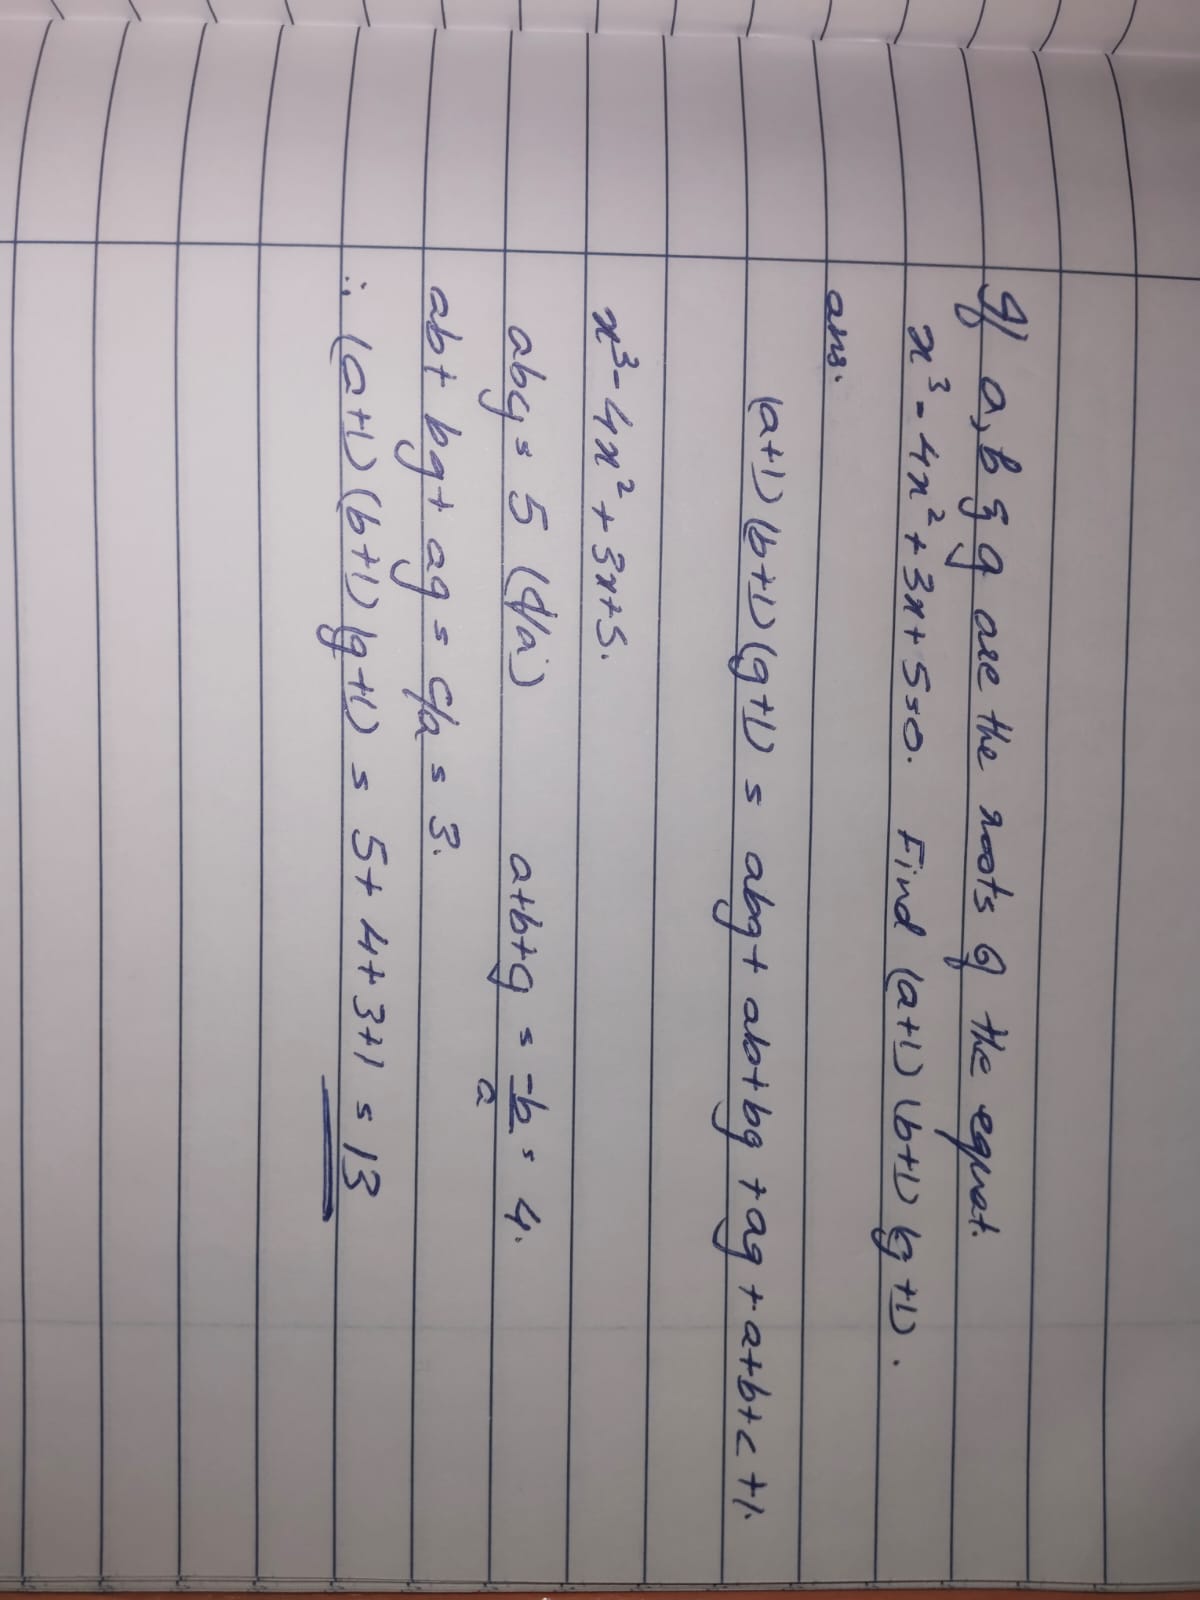 q) a, b & g are the roots of the equat.
x³ - 4x² + 3x + 5 = 0. Find (a+1) (b+1) (g+1).
ans.
(a+1) (b+1) (g+1) = abg + ab + bg + ag + a+b+c +1.
x³ - 4x² + 3x + 5.
abg = 5 (d/a) a+b+g = -b/a = 4.
ab + bg + ag = c/a = 3.
∴ (a+1) (b+1) (g+1) = 5 + 4 + 3 + 1 = 13